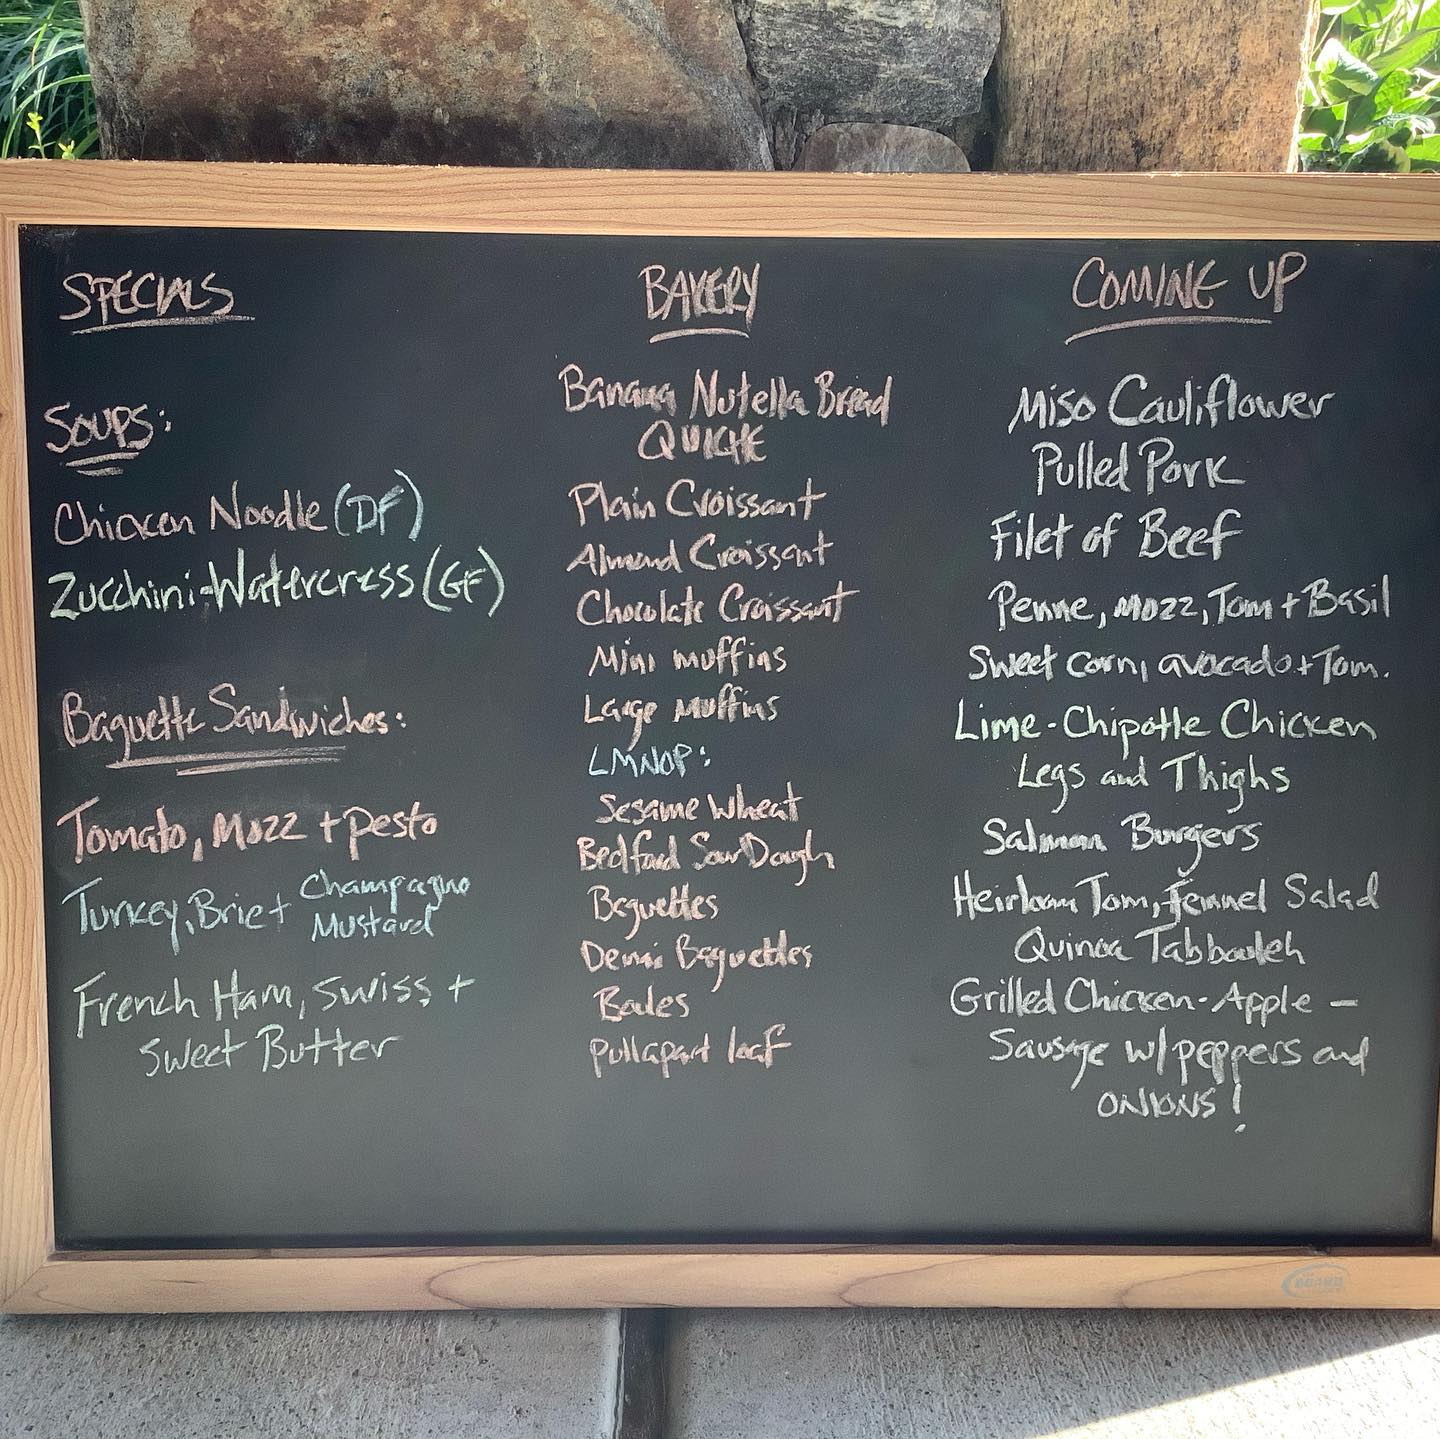 SPECIALS
SOUPS:
Chicken Noodle (DF)
Zucchini-Watercress (GF)
Baguette Sandwiches:
Tomato, Mozz + pesto
Turkey, Brie + Champagne
Mustard
French Ham, Swiss +
Sweet Butter
BAKERY
Banana Nutella Bread
QUICHE
Plain Croissant
Almond Croissant
Chocolate Croissant
Mini muffins
Large Muffins
LMNOP:
Sesame Wheat
Bedford SourDough
Baguettes
Demi Baguettes
Boules
pullapart loaf
COMING UP
Miso Cauliflower
Pulled Pork
Filet of Beef
Penne, Mozz, Tom + Basil
Sweet corn, avocado + Tom.
Lime-Chipotle Chicken
Legs and Thighs
Salmon Burgers
Heirloom Tom, Fennel Salad
Quinoa Tabbouleh
Grilled Chicken-Apple -
Sausage w/ peppers and
ONIONS!